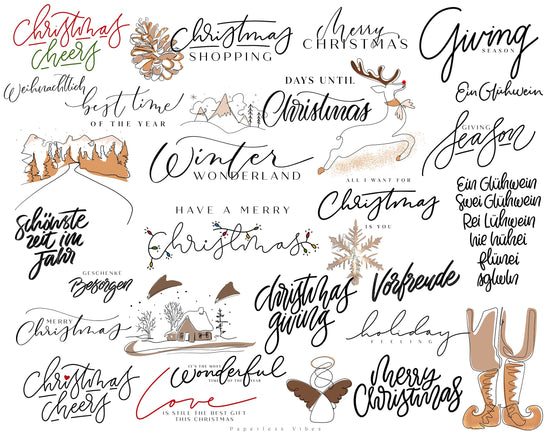 Christmas
cheers
Christmas
SHOPPING
Merry
CHRISTMAS
Giving
SEASON
Weihnachtlich
best time
OF THE YEAR
DAYS UNTIL
Christmas
Ein Glühwein
GIVING
Season
Winter
WONDERLAND
ALL I WANT FOR
Christmas
IS YOU
Ein Glühwein
Swei Glühwein
Rei Lühwein
Nie hühei
flünei
sglüwln
schönste
zeit im
Jahr
HAVE A MERRY
Christmas
GESCHENKE
Besorgen
Christmas
giving
Vorfreude
MERRY
Christmas
holiday
FEELING
Christmas
cheers
IT'S THE MOST
Wonderful
TIME OF THE YEAR
Love
IS STILL THE BEST GIFT
THIS CHRISTMAS
Merry
Christmas
Paperless Vibes